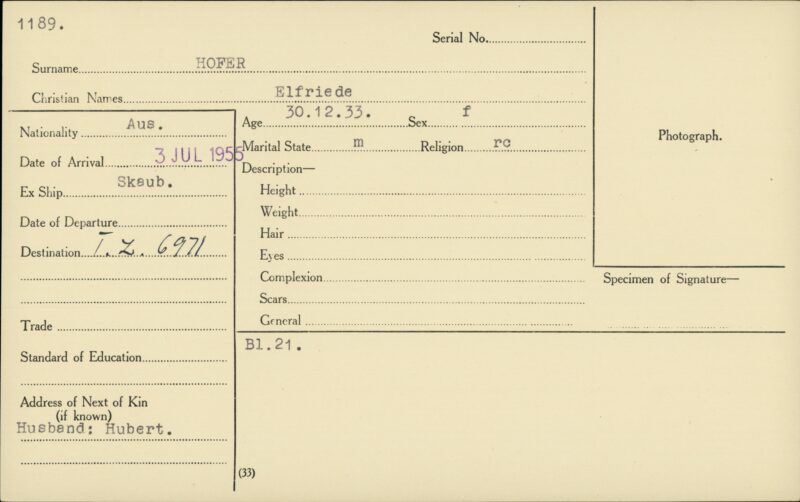 1189.
Serial No.
Surname HOFER
Christian Names Elfriede
Nationality Aus.
Date of Arrival 3 JUL 1955
Ex Ship Skaub.
Date of Departure
Destination T.Z. 6971
Trade
Standard of Education
Address of Next of Kin
(if known)
Husband: Hubert.
Age 30.12.33. Sex f
Marital State m Religion rc
Description—
Height
Weight
Hair
Eyes
Complexion
Scars
General
Bl.21.
(33)
Photograph.
Specimen of Signature—